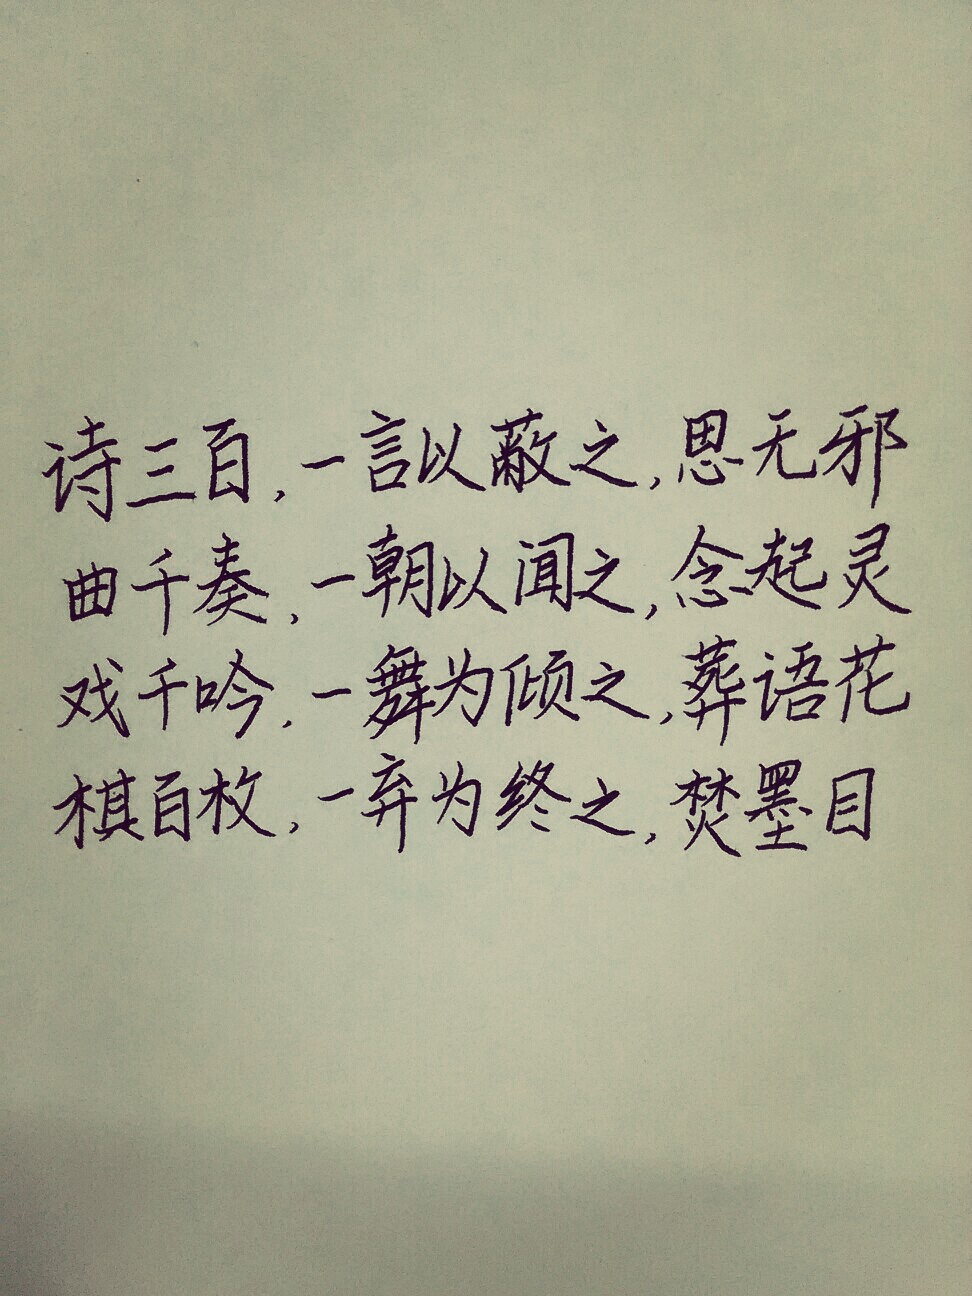 诗三百,一言以蔽之,思无邪
曲千奏,一朝以闻之,念起灵
戏千吟,一舞为倾之,葬语花
棋百枚,一弃为终之,焚墨目